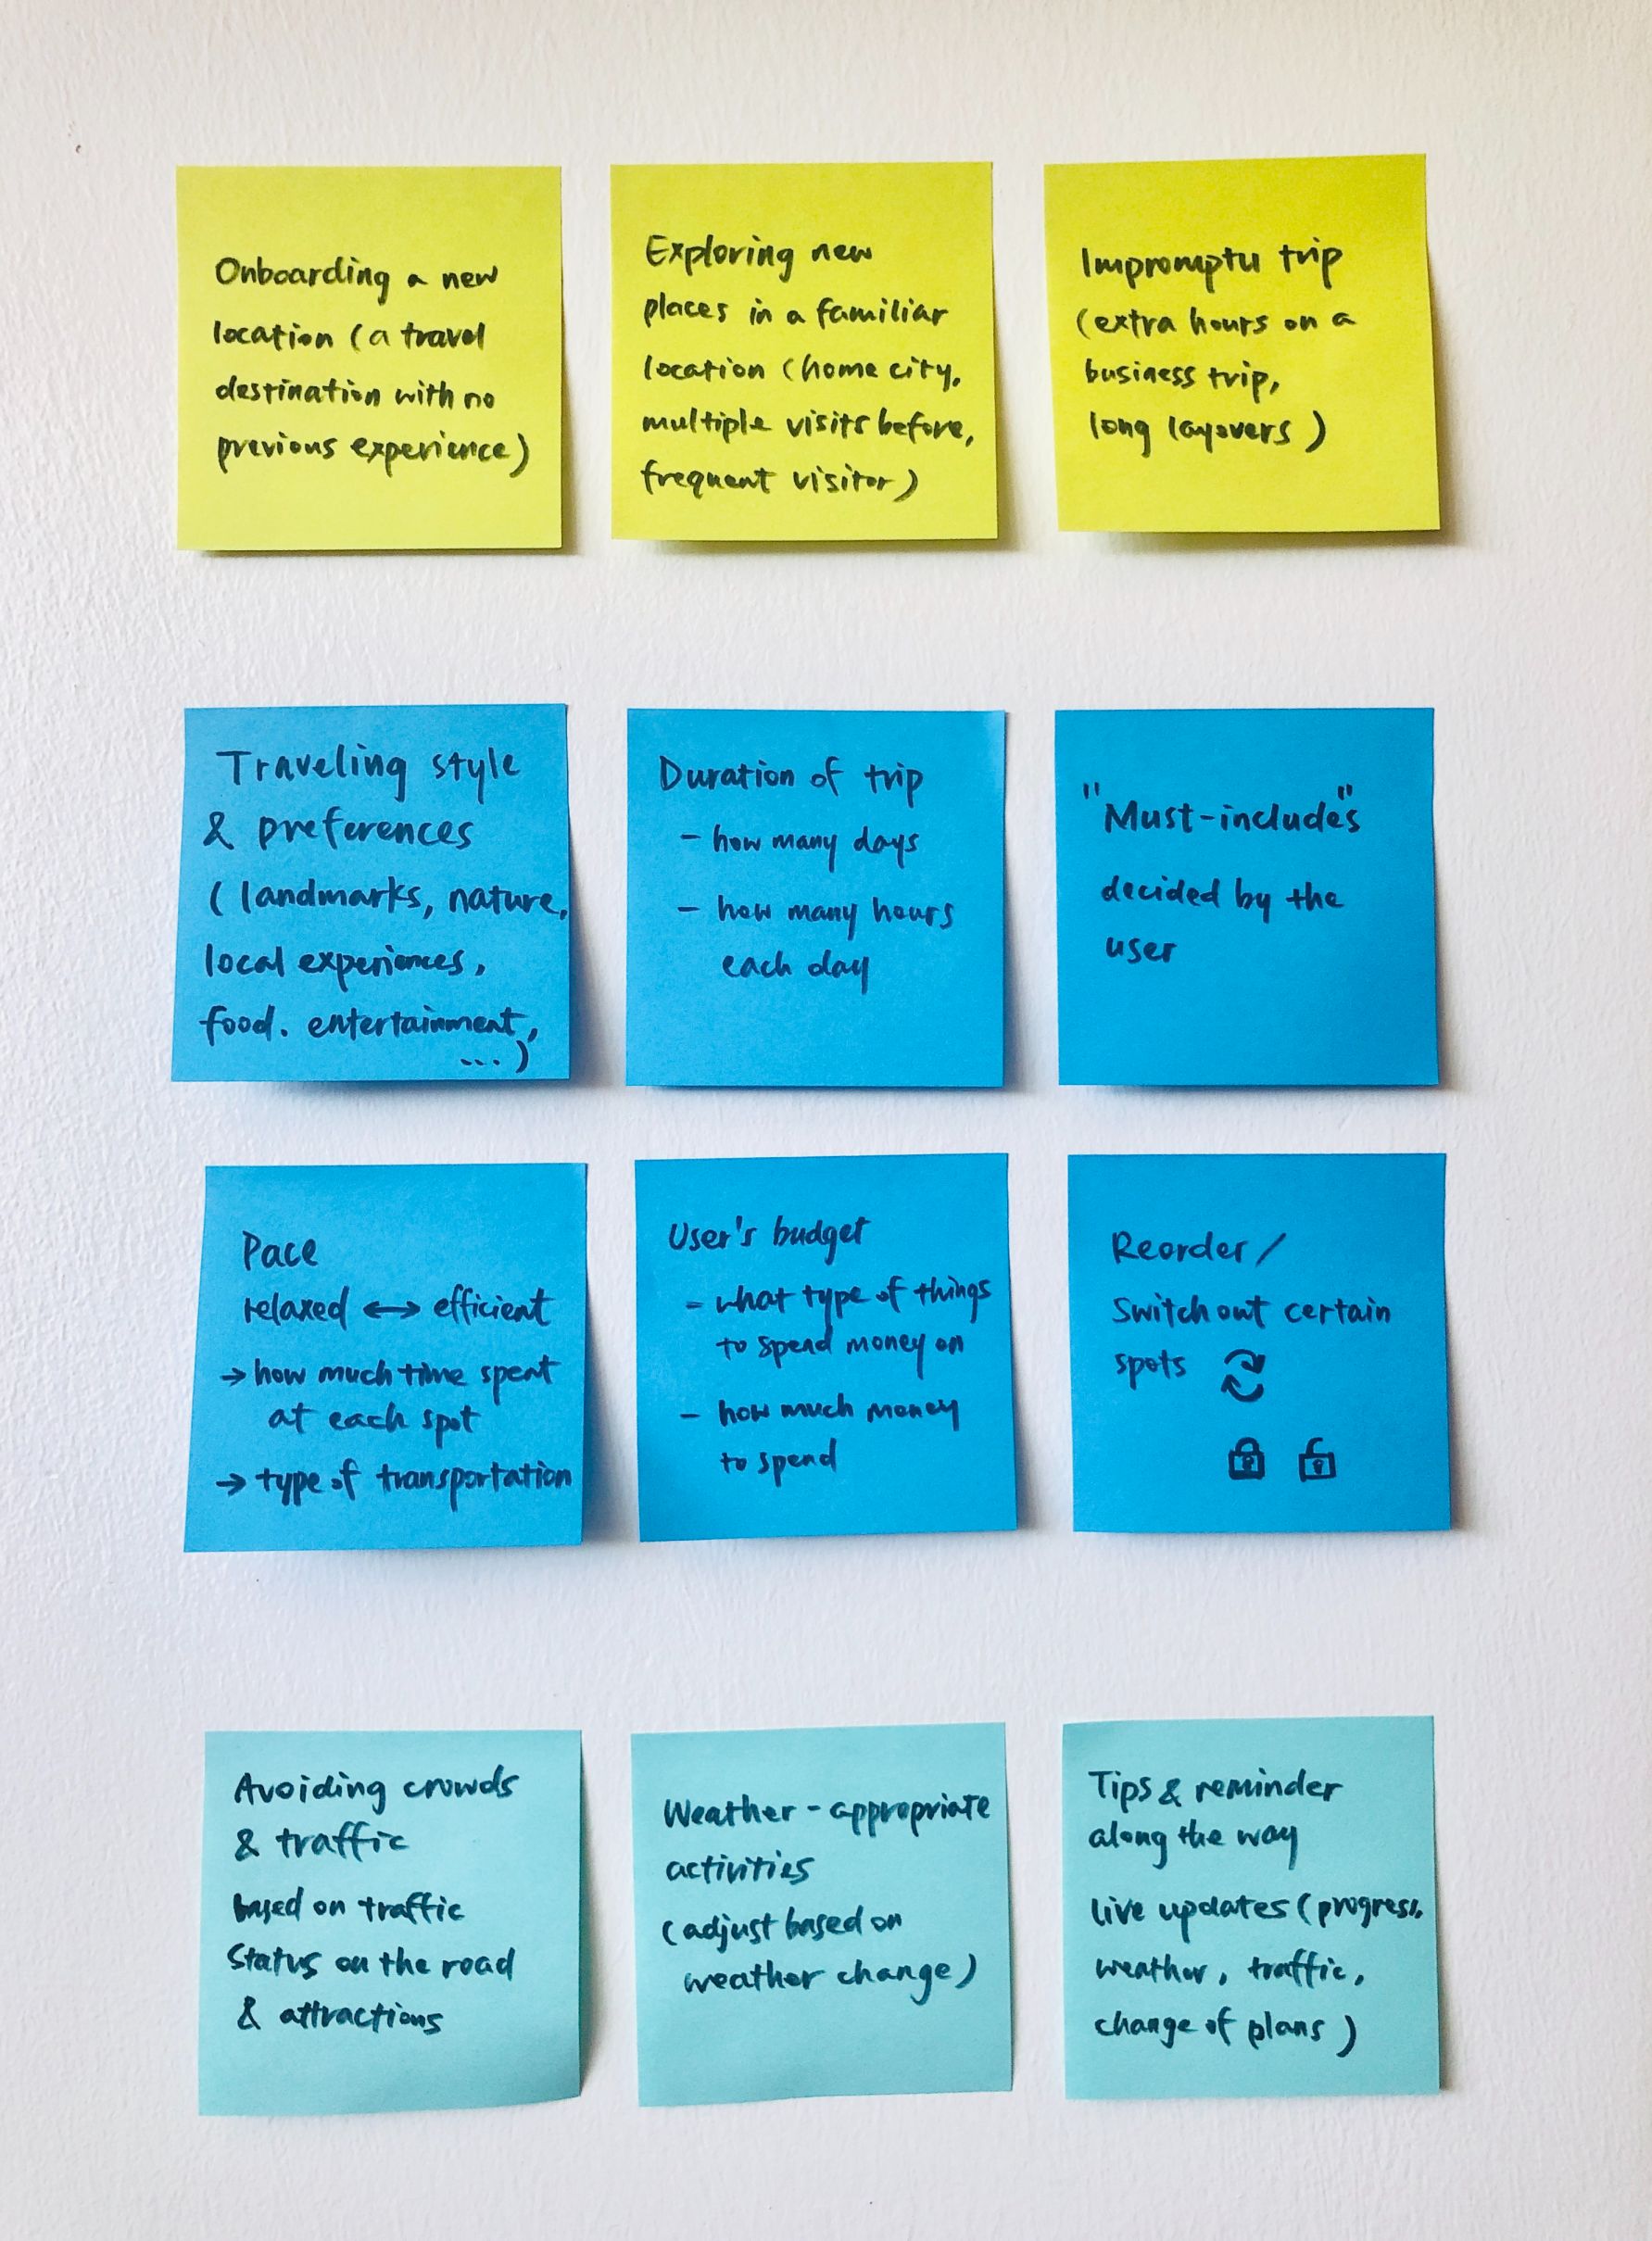 Onboarding a new
location (a travel
destination with no
previous experience)
Exploring new
places in a familiar
location (home city,
multiple visits before,
frequent visitor)
Impromptu trip
(extra hours on a
business trip,
long layovers)
Traveling style
& preferences
(landmarks, nature,
local experiences,
food. entertainment,
...)
Duration of trip
- how many days
- how many hours
each day
"Must-include"s
decided by the
user
Pace
relaxed ↔ efficient
→ how much time spent
at each spot
→ type of transportation
User's budget
- what type of things
to spend money on
- how much money
to spend
Reorder /
Switch out certain
spots
Avoiding crowds
& traffic
based on traffic
Status on the road
& attractions
Weather-appropriate
activities
(adjust based on
weather change)
Tips & reminder
along the way
live updates (progress,
weather, traffic,
change of plans)